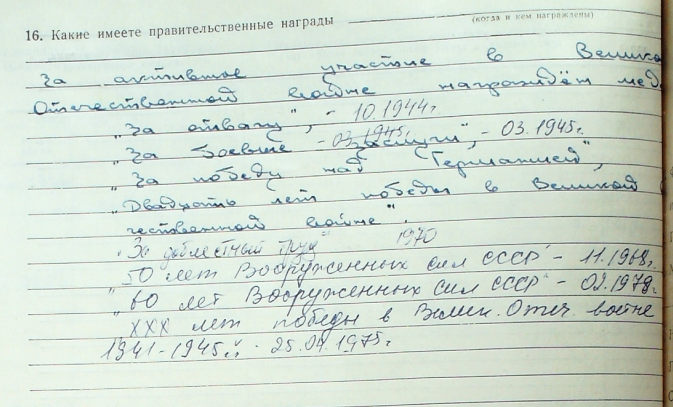 16. Какие имеете правительственные награды
(когда и кем награждены)
За активное участие в Велико
Отечественной войне награждён мед
„За отвагу", - 10.1944г
„За боевые - 03.1945г. заслуги", - 03.1945г.
„За победу над Германией",
„Двадцать лет победы в Великой
чественной войне".
„За доблестный труд" 1970
„50 лет Вооруженных сил СССР" - 11.1968г.
„60 лет Вооруженных сил СССР" - 02.1978г.
XXX лет победы в Велик. Отеч. войне
1941-1945г." - 25.04.1975г.